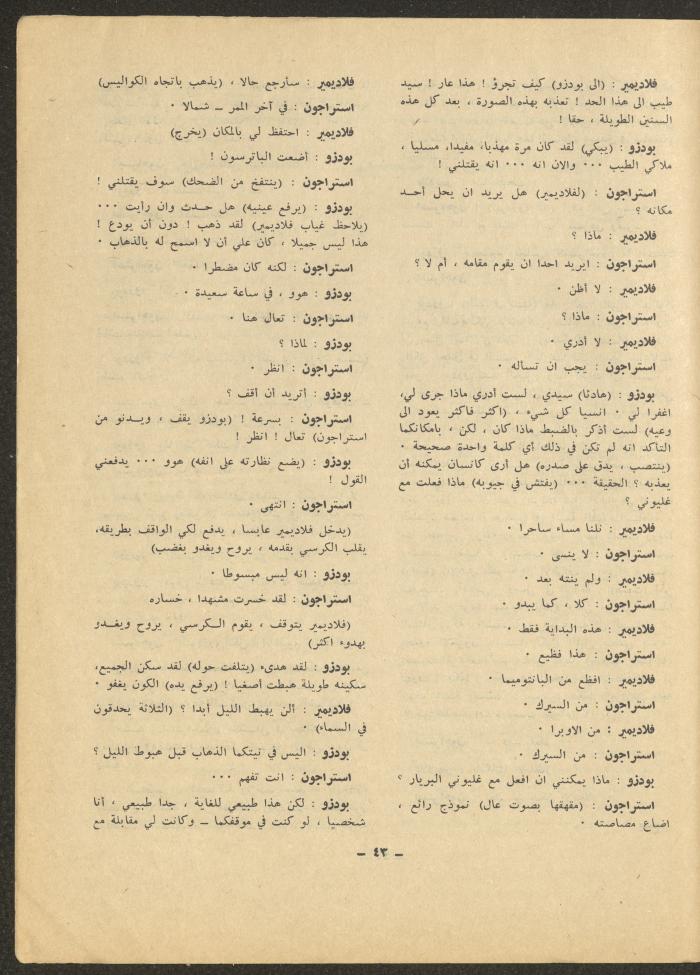 فلاديمير : (الى بودزو) كيف تجرؤ ! هذا عار ! سيد
طيب الى هذا الحد ! تعذبه بهذه الصورة ، بعد كل هذه
السنين الطويلة ، حقا !
بودزو : (يبكي) لقد كان مرة مهذبا، مفيدا، مسليا ،
ملاكي الطيب ٠٠٠ والان انه ٠٠٠ انه يقتلني !
استراجون : (لفلاديمير) هل يريد ان يحل أحد
مكانه ؟
فلاديمير : ماذا ؟
استراجون : ايريد احدا ان يقوم مقامه ، أم لا ؟
فلاديمير : لا أظن ٠
استراجون : ماذا ؟
فلاديمير : لا أدري ٠
استراجون : يجب ان تساله ٠
بودزو : (هادئا) سيدي ، لست أدري ماذا جرى لي،
اغفرا لي ٠ انسيا كل شيء ، (اكثر فاكثر يعود الى
وعيه) لست أذكر بالضبط ماذا كان ، لكن ، بامكانكما
التأكد انه لم تكن في ذلك أي كلمة واحدة صحيحة ٠
(ينتصب ، يدق على صدره) هل أرى كانسان يمكنه أن
يعذبه ؟ الحقيقة ٠٠٠ (يفتش في جيوبه) ماذا فعلت مع
غليوني ؟
فلاديمير : نلنا مساء ساحرا ٠
استراجون : لا ينسى ٠
فلاديمير : ولم ينته بعد ٠
استراجون : كلا ، كما يبدو ٠
فلاديمير : هذه البداية فقط ٠
استراجون : هذا فظيع ٠
فلاديمير : افظع من البانتوميما ٠
استراجون : من السيرك ٠
فلاديمير : من الاوبرا ٠
استراجون : من السيرك ٠
بودزو : ماذا يمكنني ان افعل مع غليوني البريار ؟
استراجون : (مقهقها بصوت عال) نموذج رائع ،
اضاع مصاصته ٠
فلاديمير : سأرجع حالا ، (يذهب باتجاه الكواليس)
استراجون : في آخر الممر ــ شمالا ٠
فلاديمير : احتفظ لي بالمكان (يخرج)
بودزو : أضعت الباترسون !
استراجون : (ينتفخ من الضحك) سوف يقتلني !
بودزو : (يرفع عينيه) هل حدث وان رأيت ٠٠٠
(يلاحظ غياب فلاديمير) لقد ذهب ! دون أن يودع !
هذا ليس جميلا ، كان علي أن لا اسمح له بالذهاب ٠
استراجون : لكنه كان مضطرا ٠
بودزو : هوو ، في ساعة سعيدة ٠
استراجون : تعال هنا ٠
بودزو : لماذا ؟
استراجون : انظر ٠
بودزو : أتريد أن أقف ؟
استراجون : بسرعة ! (بودزو يقف ، ويدنو من
استراجون) تعال ! انظر !
بودزو : (يضع نظارته على انفه) هوو ٠٠٠ يدفعني
القول !
استراجون : انتهى ٠
(يدخل فلاديمير عابسا ، يدفع لكي الواقف بطريقه،
يقلب الكرسي بقدمه ، يروح ويغدو بغضب)
بودزو : انه ليس مبسوطا ٠
استراجون : لقد خسرت مشهدا ، خساره
(فلاديمير يتوقف ، يقوم الكرسي ، يروح ويغدو
بهدوء اكثر)
بودزو : لقد هدىء (يتلفت حوله) لقد سكن الجميع،
سكينه طويلة هبطت أصغيا ! (يرفع يده) الكون يغفو ٠
فلاديمير : ألن يهبط الليل أبدا ؟ (الثلاثة يحدقون
في السماء) ٠
بودزو : اليس في نيتكما الذهاب قبل هبوط الليل ؟
استراجون : انت تفهم ٠٠٠
بودزو : لكن هذا طبيعي للغاية ، جدا طبيعي ، أنا
شخصيا ، لو كنت في موقفكما ــ وكانت لي مقابلة مع
ــ ٤٣ ــ